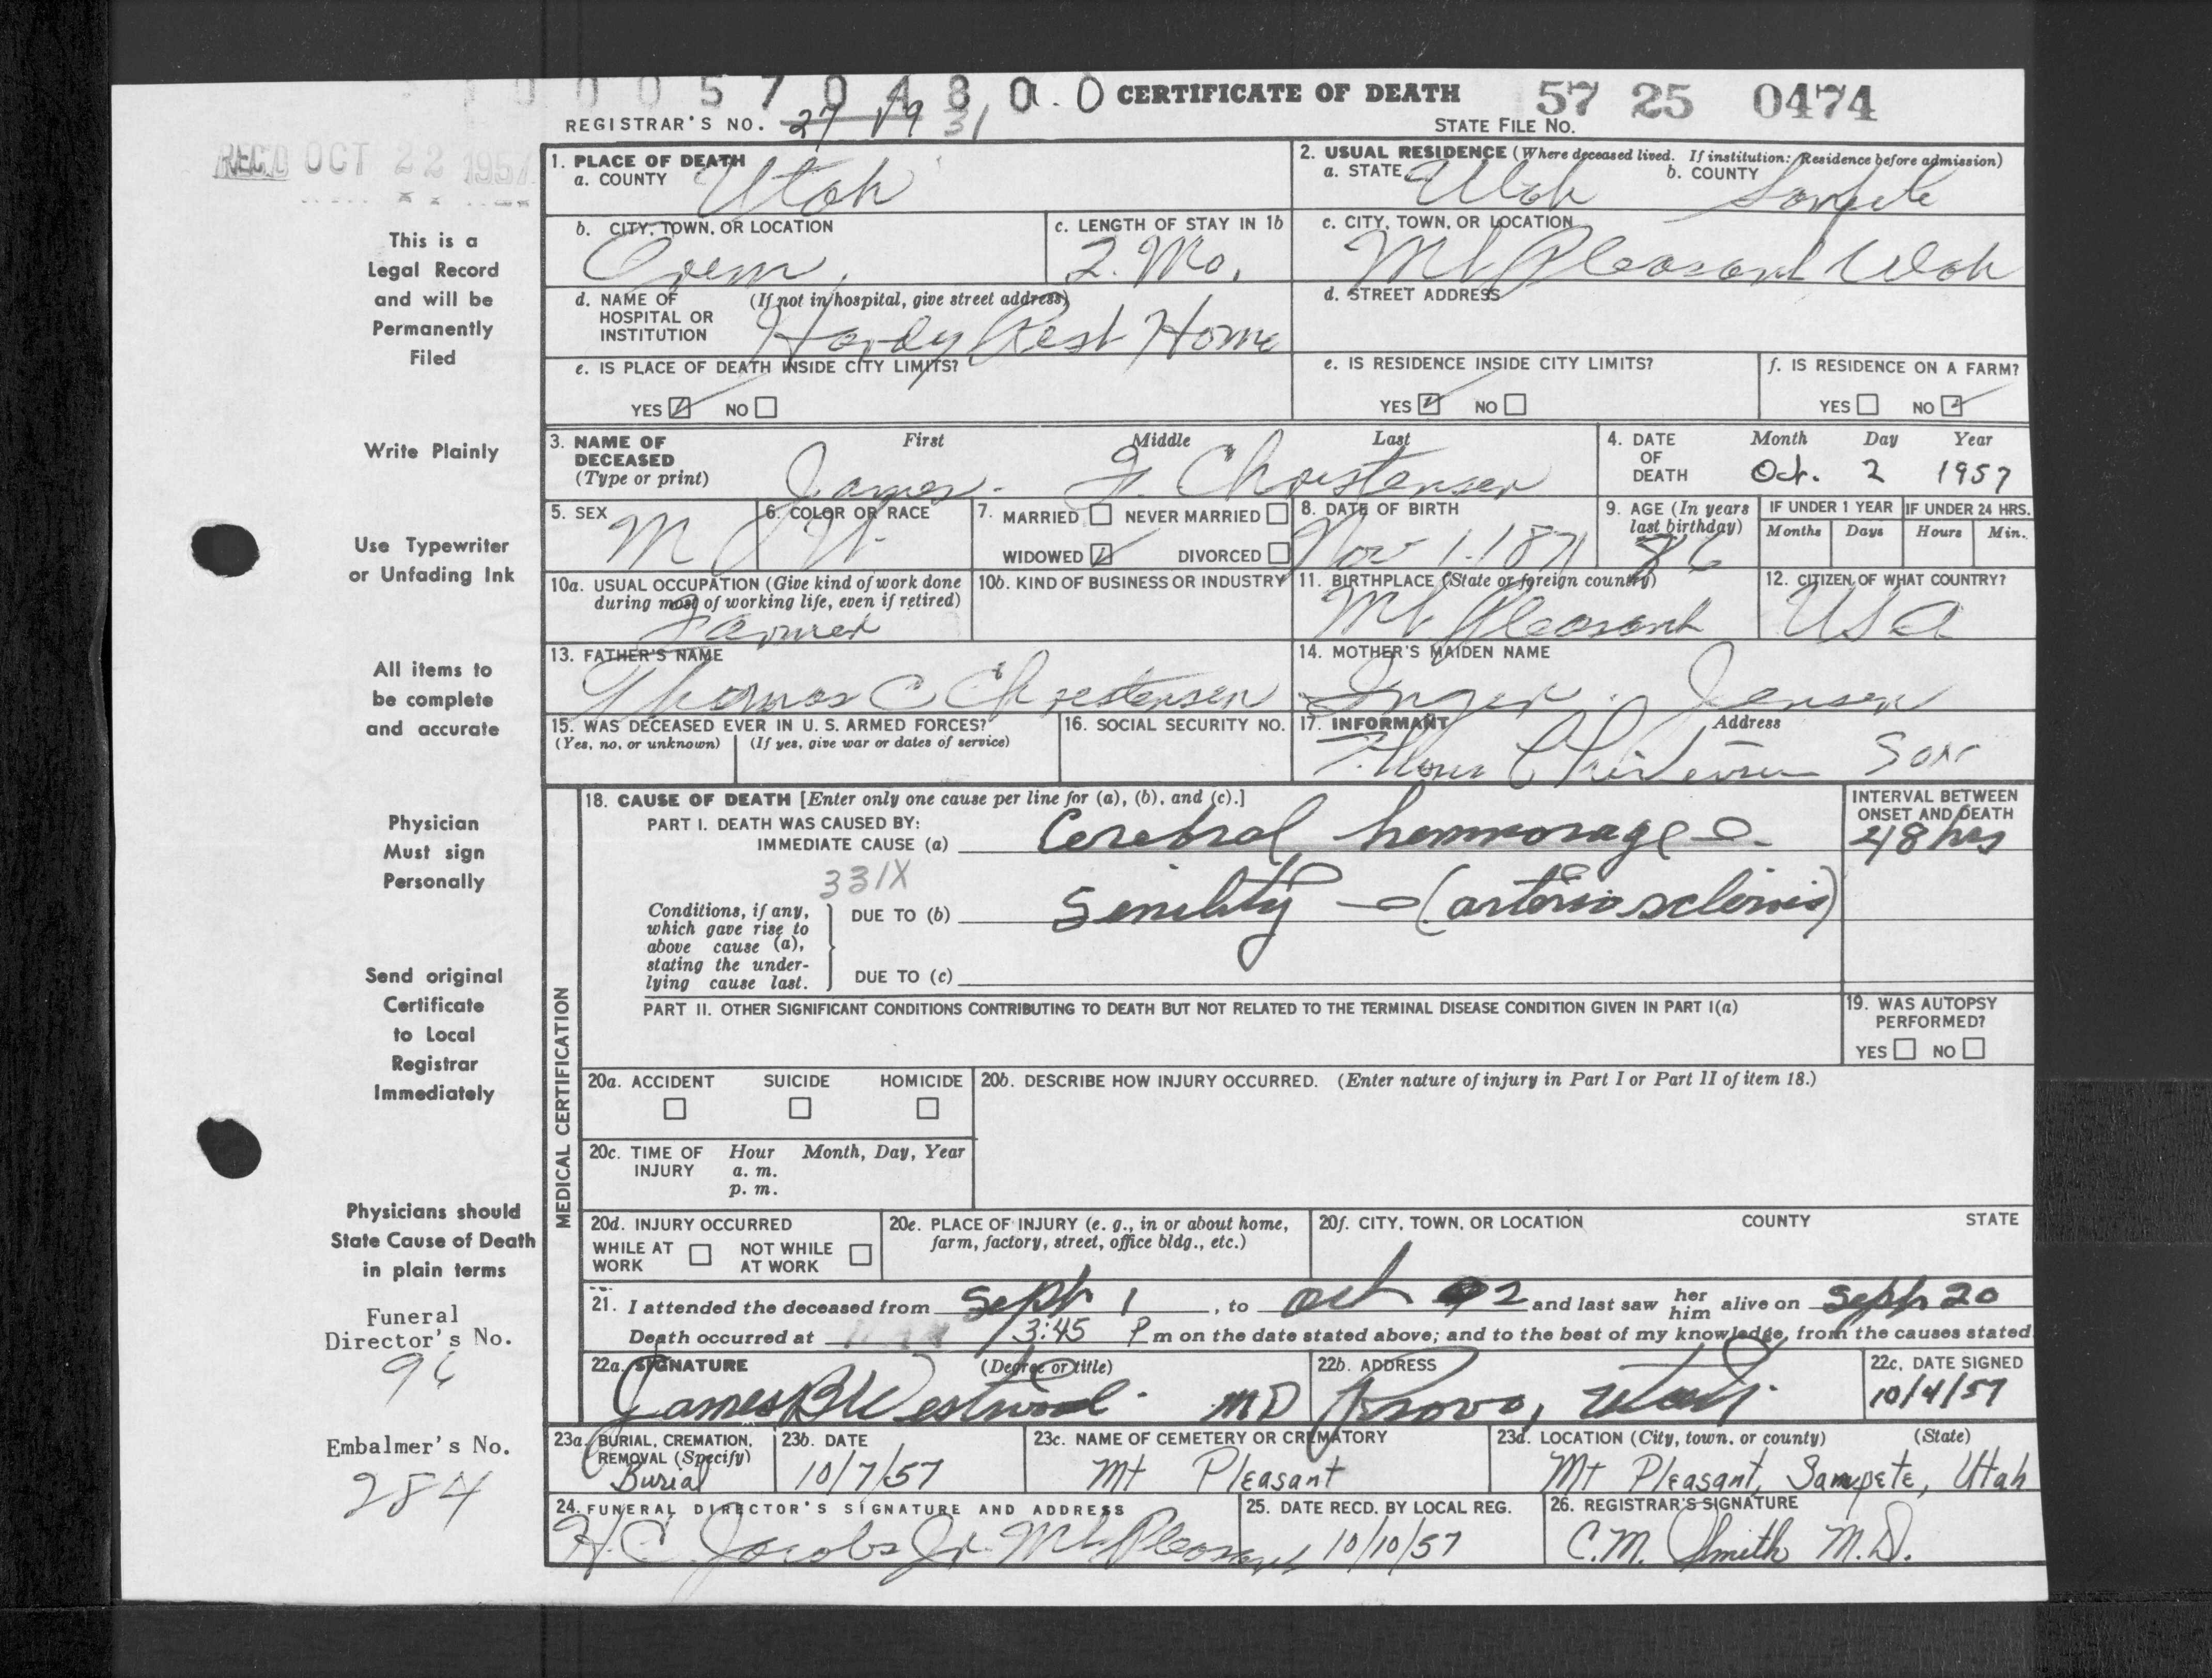 1000570480.0 CERTIFICATE OF DEATH 57 25 0474
REGISTRAR'S NO. 27 19 31 STATE FILE NO.
REC'D OCT 22 1957
This is a
Legal Record
and will be
Permanently
Filed
Write Plainly
Use Typewriter
or Unfading Ink
All items to
be complete
and accurate
Physician
Must sign
Personally
Send original
Certificate
to Local
Registrar
Immediately
Physicians should
State Cause of Death
in plain terms
Funeral
Director's No.
96
Embalmer's No.
284
1. PLACE OF DEATH
a. COUNTY Utah
2. USUAL RESIDENCE (Where deceased lived. If institution: Residence before admission)
a. STATE Utah b. COUNTY Sanpete
b. CITY, TOWN, OR LOCATION
Orem,
c. LENGTH OF STAY IN 1b
2. Mo.
c. CITY, TOWN, OR LOCATION
Mt Pleasant Utah
d. NAME OF (If not in hospital, give street address)
HOSPITAL OR
INSTITUTION Hardy Rest Home
d. STREET ADDRESS
e. IS PLACE OF DEATH INSIDE CITY LIMITS?
YES NO
e. IS RESIDENCE INSIDE CITY LIMITS?
YES NO
f. IS RESIDENCE ON A FARM?
YES NO
3. NAME OF DECEASED (Type or print)
First Middle Last
James. F. Christensen
4. DATE OF DEATH
Month Day Year
Oct. 2 1957
5. SEX
M
6. COLOR OR RACE
W.
7. MARRIED NEVER MARRIED
WIDOWED DIVORCED
8. DATE OF BIRTH
Nov 1-1871
9. AGE (In years
last birthday)
86
IF UNDER 1 YEAR IF UNDER 24 HRS.
Months Days Hours Min.
10a. USUAL OCCUPATION (Give kind of work done
during most of working life, even if retired)
Farmer
10b. KIND OF BUSINESS OR INDUSTRY
11. BIRTHPLACE (State or foreign country)
Mt Pleasant
12. CITIZEN OF WHAT COUNTRY?
USA
13. FATHER'S NAME
Thomas C Christensen
14. MOTHER'S MAIDEN NAME
Inger. Jensen
15. WAS DECEASED EVER IN U. S. ARMED FORCES?
(Yes, no, or unknown) (If yes, give war or dates of service)
16. SOCIAL SECURITY NO.
17. INFORMANT Address
Christensen Son
MEDICAL CERTIFICATION
18. CAUSE OF DEATH [Enter only one cause per line for (a), (b), and (c).]
INTERVAL BETWEEN
ONSET AND DEATH
PART I. DEATH WAS CAUSED BY:
IMMEDIATE CAUSE (a) Cerebral hemmorage 48 hrs
331X
Conditions, if any,
which gave rise to
above cause (a),
stating the under-
lying cause last.
DUE TO (b) Senility (arterio sclerosis)
DUE TO (c)
PART II. OTHER SIGNIFICANT CONDITIONS CONTRIBUTING TO DEATH BUT NOT RELATED TO THE TERMINAL DISEASE CONDITION GIVEN IN PART I(a)
19. WAS AUTOPSY
PERFORMED?
YES NO
20a. ACCIDENT SUICIDE HOMICIDE
20b. DESCRIBE HOW INJURY OCCURRED. (Enter nature of injury in Part I or Part II of item 18.)
20c. TIME OF Hour Month, Day, Year
INJURY a. m.
p. m.
20d. INJURY OCCURRED
WHILE AT NOT WHILE
WORK AT WORK
20e. PLACE OF INJURY (e. g., in or about home,
farm, factory, street, office bldg., etc.)
20f. CITY, TOWN, OR LOCATION COUNTY STATE
21. I attended the deceased from Sept 1, to Oct 2 and last saw her him alive on Sept 20
Death occurred at 3:45 P m on the date stated above; and to the best of my knowledge, from the causes stated
22a. SIGNATURE (Degree or title)
James B Westwood. MD
22b. ADDRESS
Provo, Utah.
22c. DATE SIGNED
10/4/57
23a. BURIAL, CREMATION,
REMOVAL (Specify)
Burial
23b. DATE
10/7/57
23c. NAME OF CEMETERY OR CREMATORY
Mt Pleasant
23d. LOCATION (City, town, or county) (State)
Mt Pleasant, Sanpete, Utah
24. FUNERAL DIRECTOR'S SIGNATURE AND ADDRESS
H.C. Jacobs Jr. Mt Pleasant
25. DATE RECD. BY LOCAL REG.
10/10/57
26. REGISTRAR'S SIGNATURE
C.M. Smith M.D.